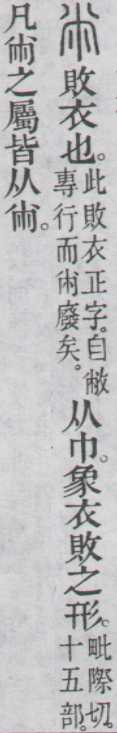 㡀 敗衣也。此敗衣正字。自敝專行而㡀廢矣。从巾。象衣敗之形。毗際切。十五部。
凡㡀之屬皆从㡀。